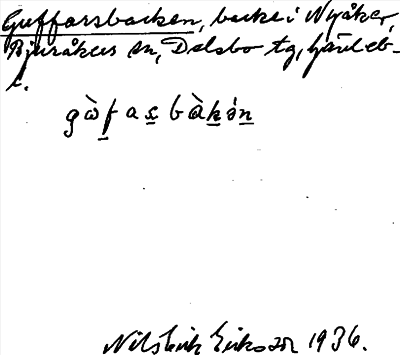 Guffarsbacken, backe i Nyåker,
Bjuråkers sn, Delsbo tg, Gävleb-
l.
gὼf a s̲ b ὰk̲ ən̲
Nils Erik Eriksson 1936.